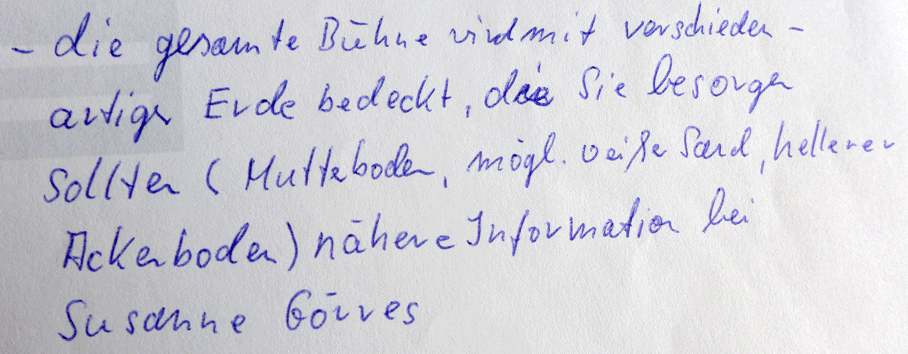 - die gesamte Bühne wird mit verschieden-
artiger Erde bedeckt, die Sie besorgen
sollten (Mutterboden, mögl. weißer Sand, hellerer
Ackerboden) nähere Information bei
Susanne Görres